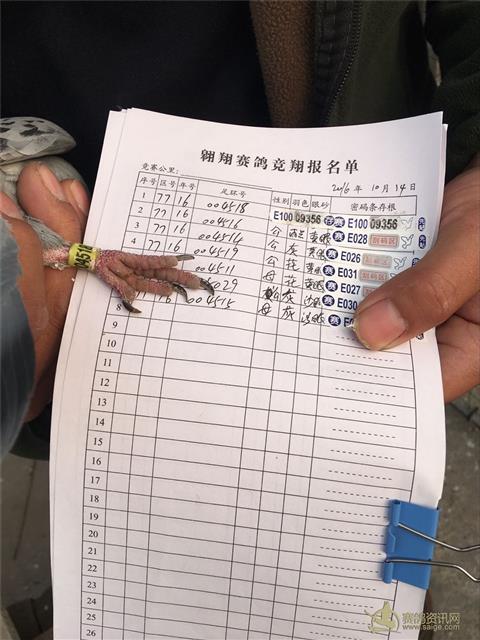 翱翔赛鸽竞翔报名单
竞赛公里:
2016 年 10 月 14 日
序号 区号 年号 足环号 性别 羽色 眼砂 密码条存根
1 77 16 004518 E100 09356 存赛 E100 09356
2 77 16 004516 公 赛 E028 刮码区
3 77 16 004514 公 灰 黄眼 赛 E026
4 77 16 004519 公 花 黄眼 赛 E031 刮码区
004511 母 花 黄眼 赛 E027
029 灰 沙眼 赛 E030
004515 母 灰 沙眼 赛 E0
8
9
10
11
12
13
14
15
16
17
18
19
20
21
22
23
24
25
26
4514
赛鸽资讯网
www.saige.com